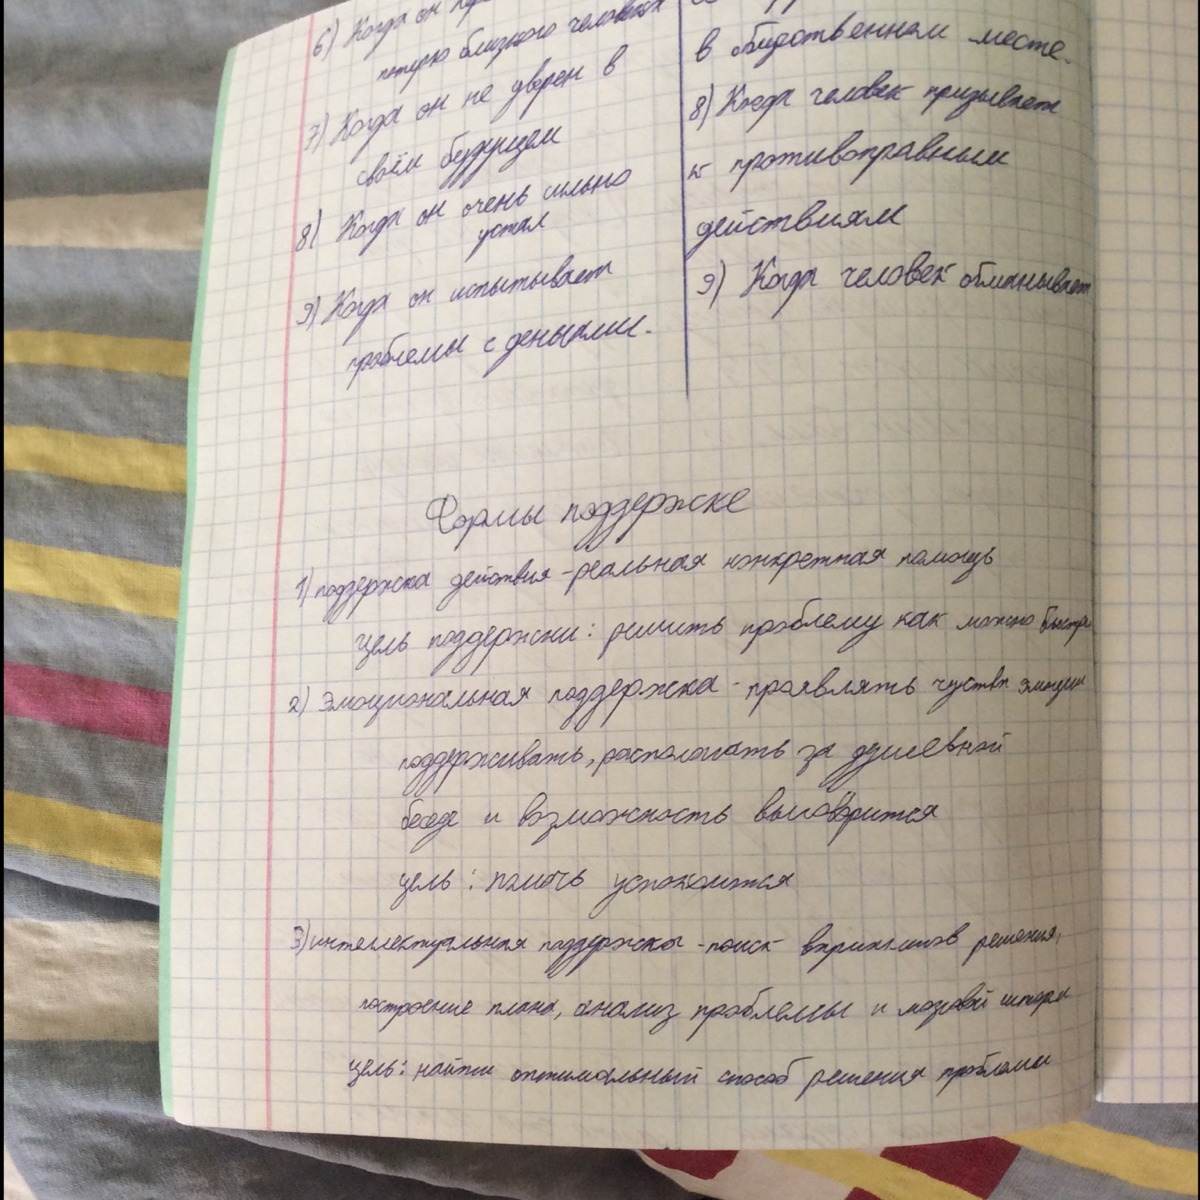 6) Когда он
потерю близкого человека
7) Когда он не уверен в
своём будущем
8) Когда он очень сильно
устал
9) Когда он испытывает
проблемы с деньгами.
в общественном месте.
8) Когда человек призывает
к противоправным
действиям
9) Когда человек обманывает
Формы поддержке
1) поддержка действия - реальная конкретная помощь
цель поддержки: решить проблему как можно быстрее
2) эмоциональная поддержка - проявлять чуства эмоции
поддерживать, располагать за душевной
беседе и возможность выговорится
цель: помочь успокоится
3) интеллектуальная поддержка - поиск вариантов решения,
построение плана, анализ проблемы и мозговой штурм
цель: найти оптимальный способ решения проблемы